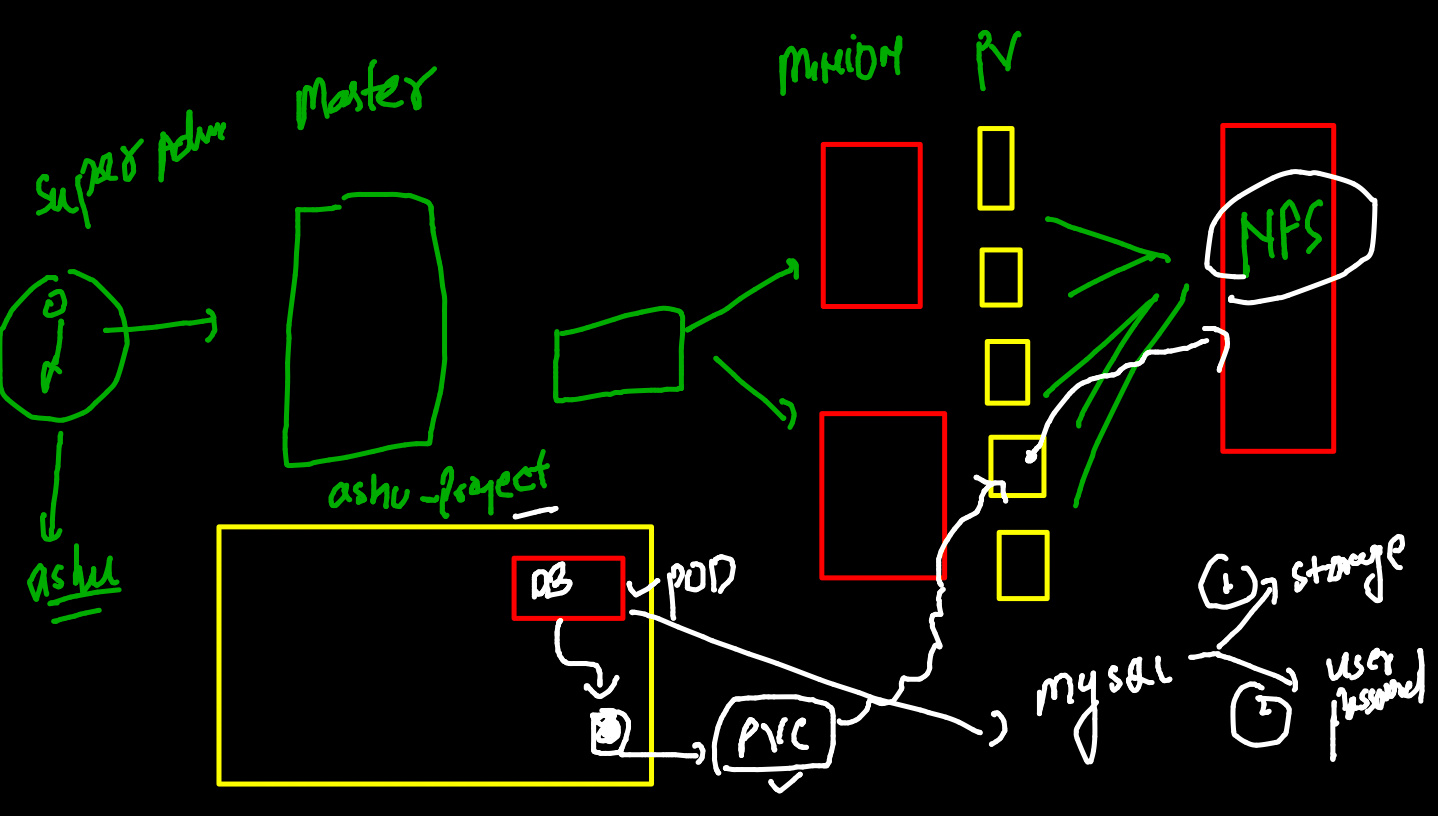 Super Adm
Master
MINION
PV
NFS
ashu-project
ashu
DB
POD
PVC
mysql
1
storage
2
user
password